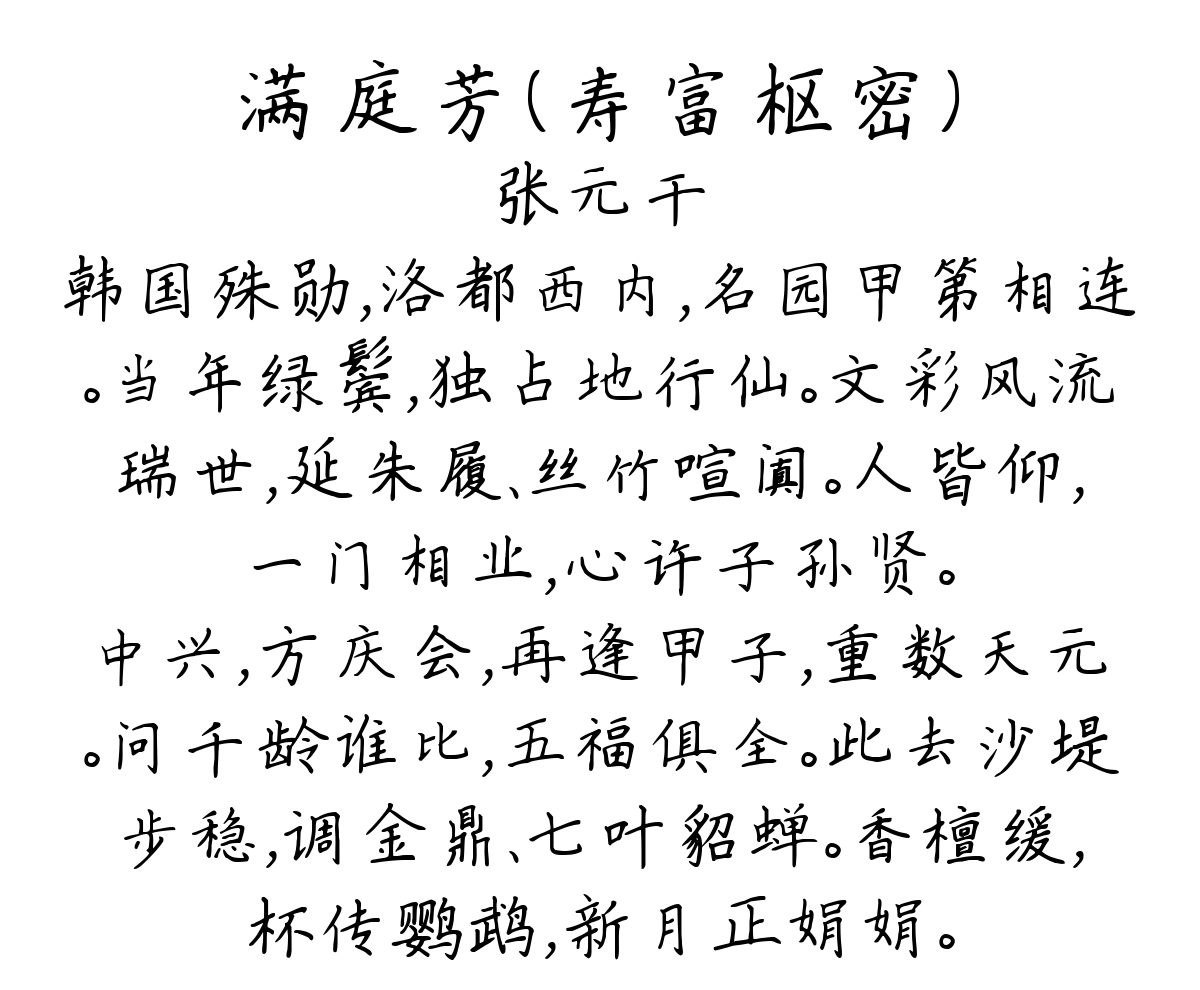 满庭芳(寿富枢密)
张元干
韩国殊勋,洛都西内,名园甲第相连
。当年绿鬓,独占地行仙。文彩风流
瑞世,延朱履、丝竹喧阗。人皆仰,
一门相业,心许子孙贤。
中兴,方庆会,再逢甲子,重数天元
。问千龄谁比,五福俱全。此去沙堤
步稳,调金鼎、七叶貂蝉。香檀缓,
杯传鹦鹉,新月正娟娟。